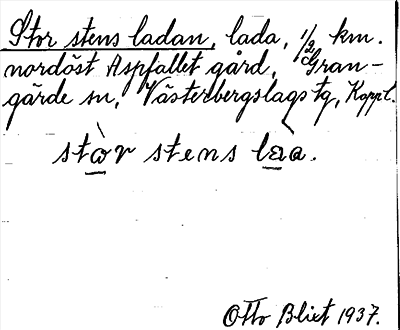 Stor stens ladan, lada, 1/2 km.
nordöst Aspfallet gård, Gran-
gärde sn, Västerbergslags tg, Koppl.
stòr stens làa.
Otto Blixt 1937.